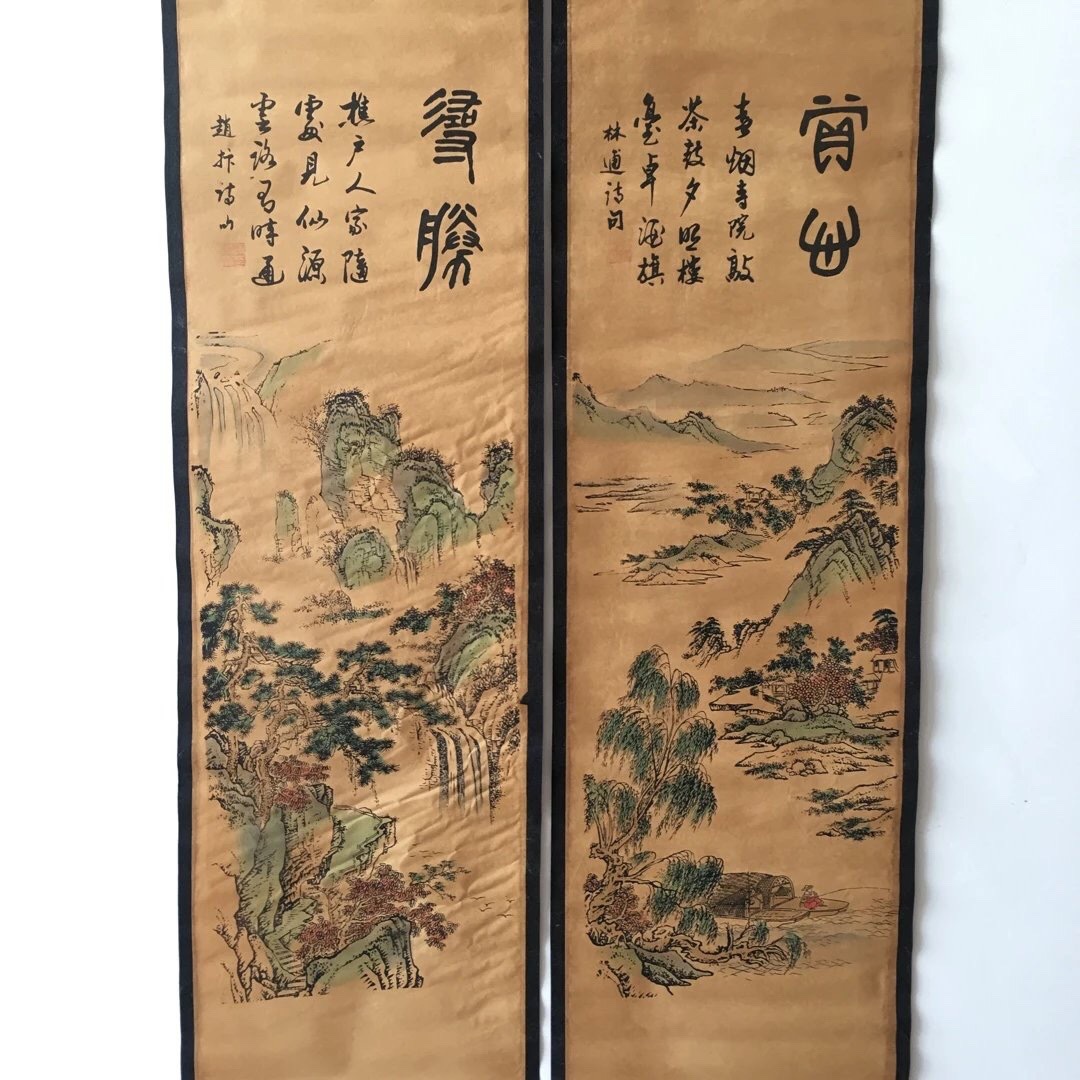 春烟寺院敲
茶鼓夕照樓
臺卓酒旗
林逋詩句
勝
樵户人家隨
處見仙源
雲路有時通
趙抃詩句